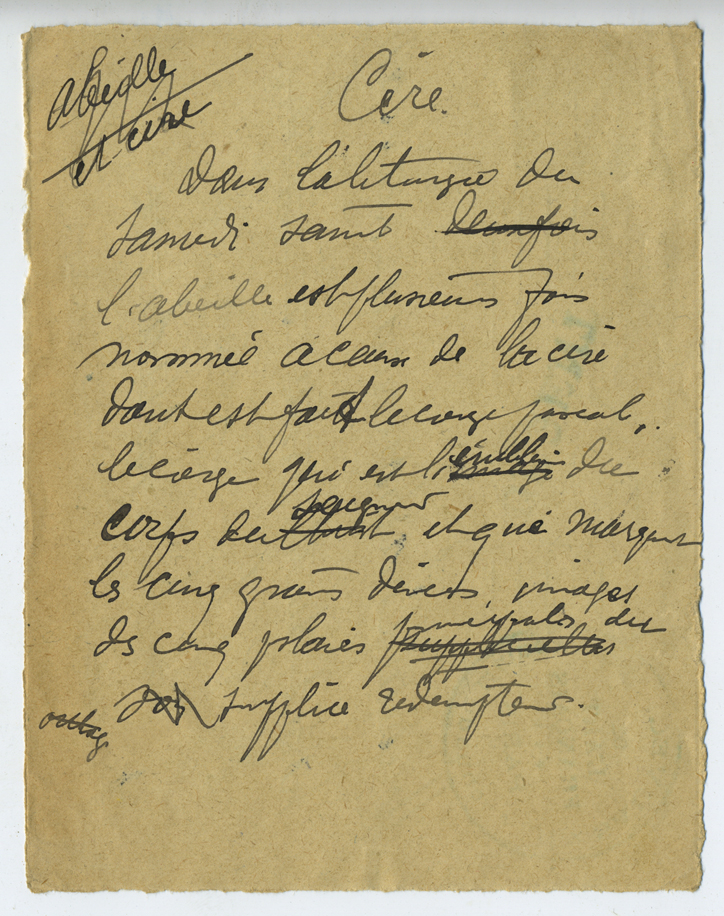 abeille
et cire
Cire.
Dans la liturgie du
samedi saint deux fois
l'abeille est plusieurs fois
nommée à cause de la cire
dont est fait le cierge pascal,
emblème
le cierge qui est l'image du
Seigneur
corps du Christ et que marquent
les cinq grains d'encens, images
principales du
des cinq plaies
son supplice rédempteur.